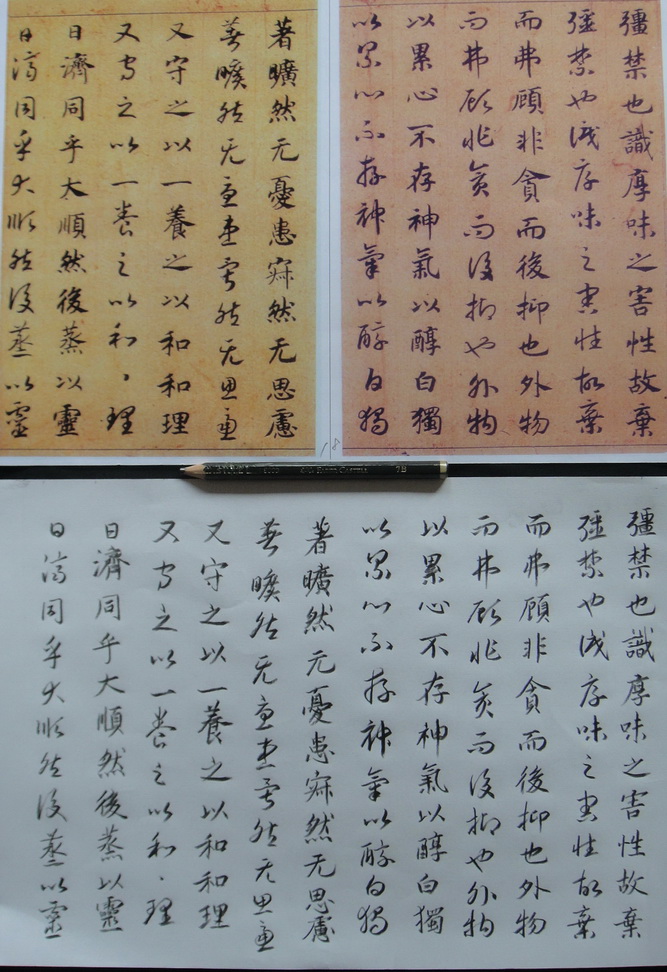 彊禁也識厚味之害性故棄
彊禁也識厚味之害性故棄
而弗顧非貪而後抑也外物
而弗顧非貪而後抑也外物
以累心不存神氣以醇白獨
以累心不存神氣以醇白獨
著曠然无憂患寂然无思慮
著曠然无憂患寂然无思慮
又守之以一養之以和和理
又守之以一養之以和、理
日濟同乎太順然後蒸以靈
日濟同乎大順然後蒸以靈
18
7B
彊禁也識厚味之害性故棄
彊禁也識厚味之害性故棄
而弗顧非貪而後抑也外物
而弗顧非貪而後抑也外物
以累心不存神氣以醇白獨
以累心不存神氣以醇白獨
著曠然无憂患寂然无思慮
著曠然无憂患寂然无思慮
又守之以一養之以和和理
又守之以一養之以和、理
日濟同乎大順然後蒸以靈
日濟同乎大順然後蒸以靈